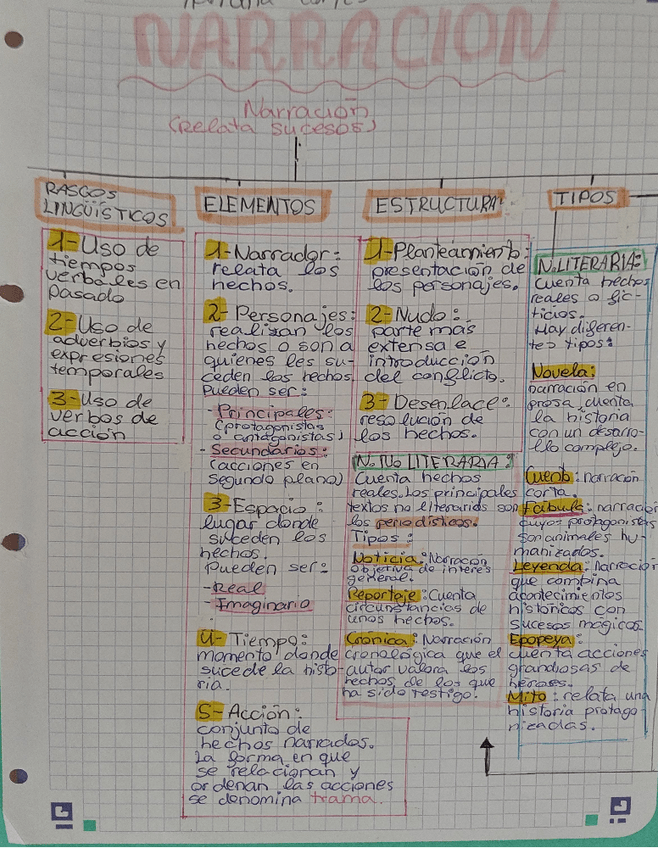 NARRACION
Narración
(Relata sucesos)
RASGOS
LINGÜÍSTICOS
1-Uso de
tiempos
verbales en
pasado
2-Uso de
adverbios y
expresiones
temporales
3-Uso de
verbos de
acción
ELEMENTOS
1-Narrador:
relata los
hechos.
2-Personajes:
realizan los
hechos o son a
quienes les su-
ceden los hechos
Pueden ser:
-Principales:
(protagonistas
o antagonistas)
-Secundarios:
(acciones en
segundo plano)
3-Espacio:
lugar donde
suceden los
hechos.
Pueden ser:
-Real
-Imaginario
4-Tiempo:
momento donde
sucede la histo-
ria.
5-Acción:
conjunto de
hechos narrados.
La forma en que
se relacionan y
ordenan las acciones
se denomina trama.
ESTRUCTURA
1-Planteamiento:
presentación de
los personajes.
2-Nudo:
parte más
extensa e
introducción
del conflicto.
3-Desenlace:
resolución de
los hechos.
N. NO LITERARIA:
Cuenta hechos
reales. Los principales
textos no literarios son
los periodísticos.
Tipos:
Noticia: Narración
objetiva de interés
general.
Reportaje: Cuenta
circunstancias de
unos hechos.
Crónica: Narración
cronológica que el
autor valora los
hechos de los que
ha sido testigo.
TIPOS
N. LITERARIA:
Cuenta hechos
reales o fic-
ticios.
Hay diferen-
tes tipos:
Novela:
narración en
prosa, cuenta
la historia
con un desarro-
llo complejo.
Cuento: narración
corta.
Fábula: narració
cuyos protagonistas
son animales hu-
manizados.
Leyenda: Narració
que combina
acontecimientos
históricos con
sucesos mágicos.
Epopeya:
cuenta acciones
grandiosas de
héroes.
Mito: relata una
historia protago-
nizadas.